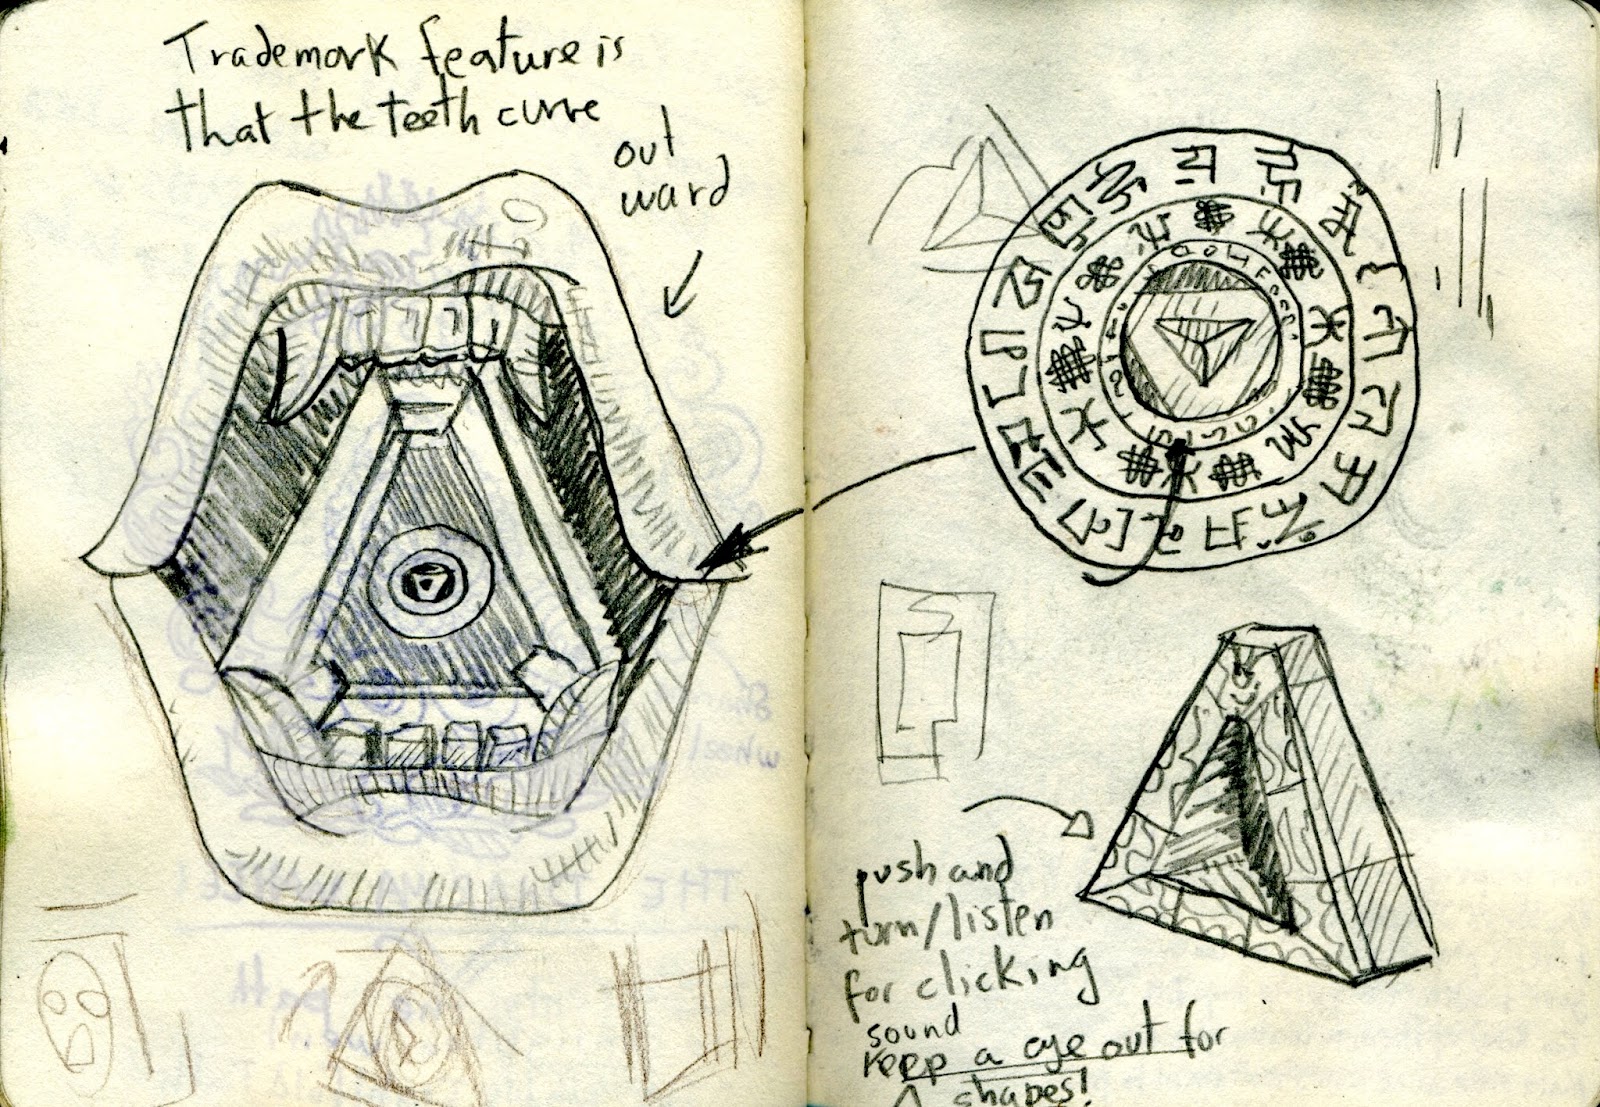 Trademark feature is
that the teeth curve
out
ward
push and
turn/listen
for clicking
sound
keep a eye out for
△ shapes!